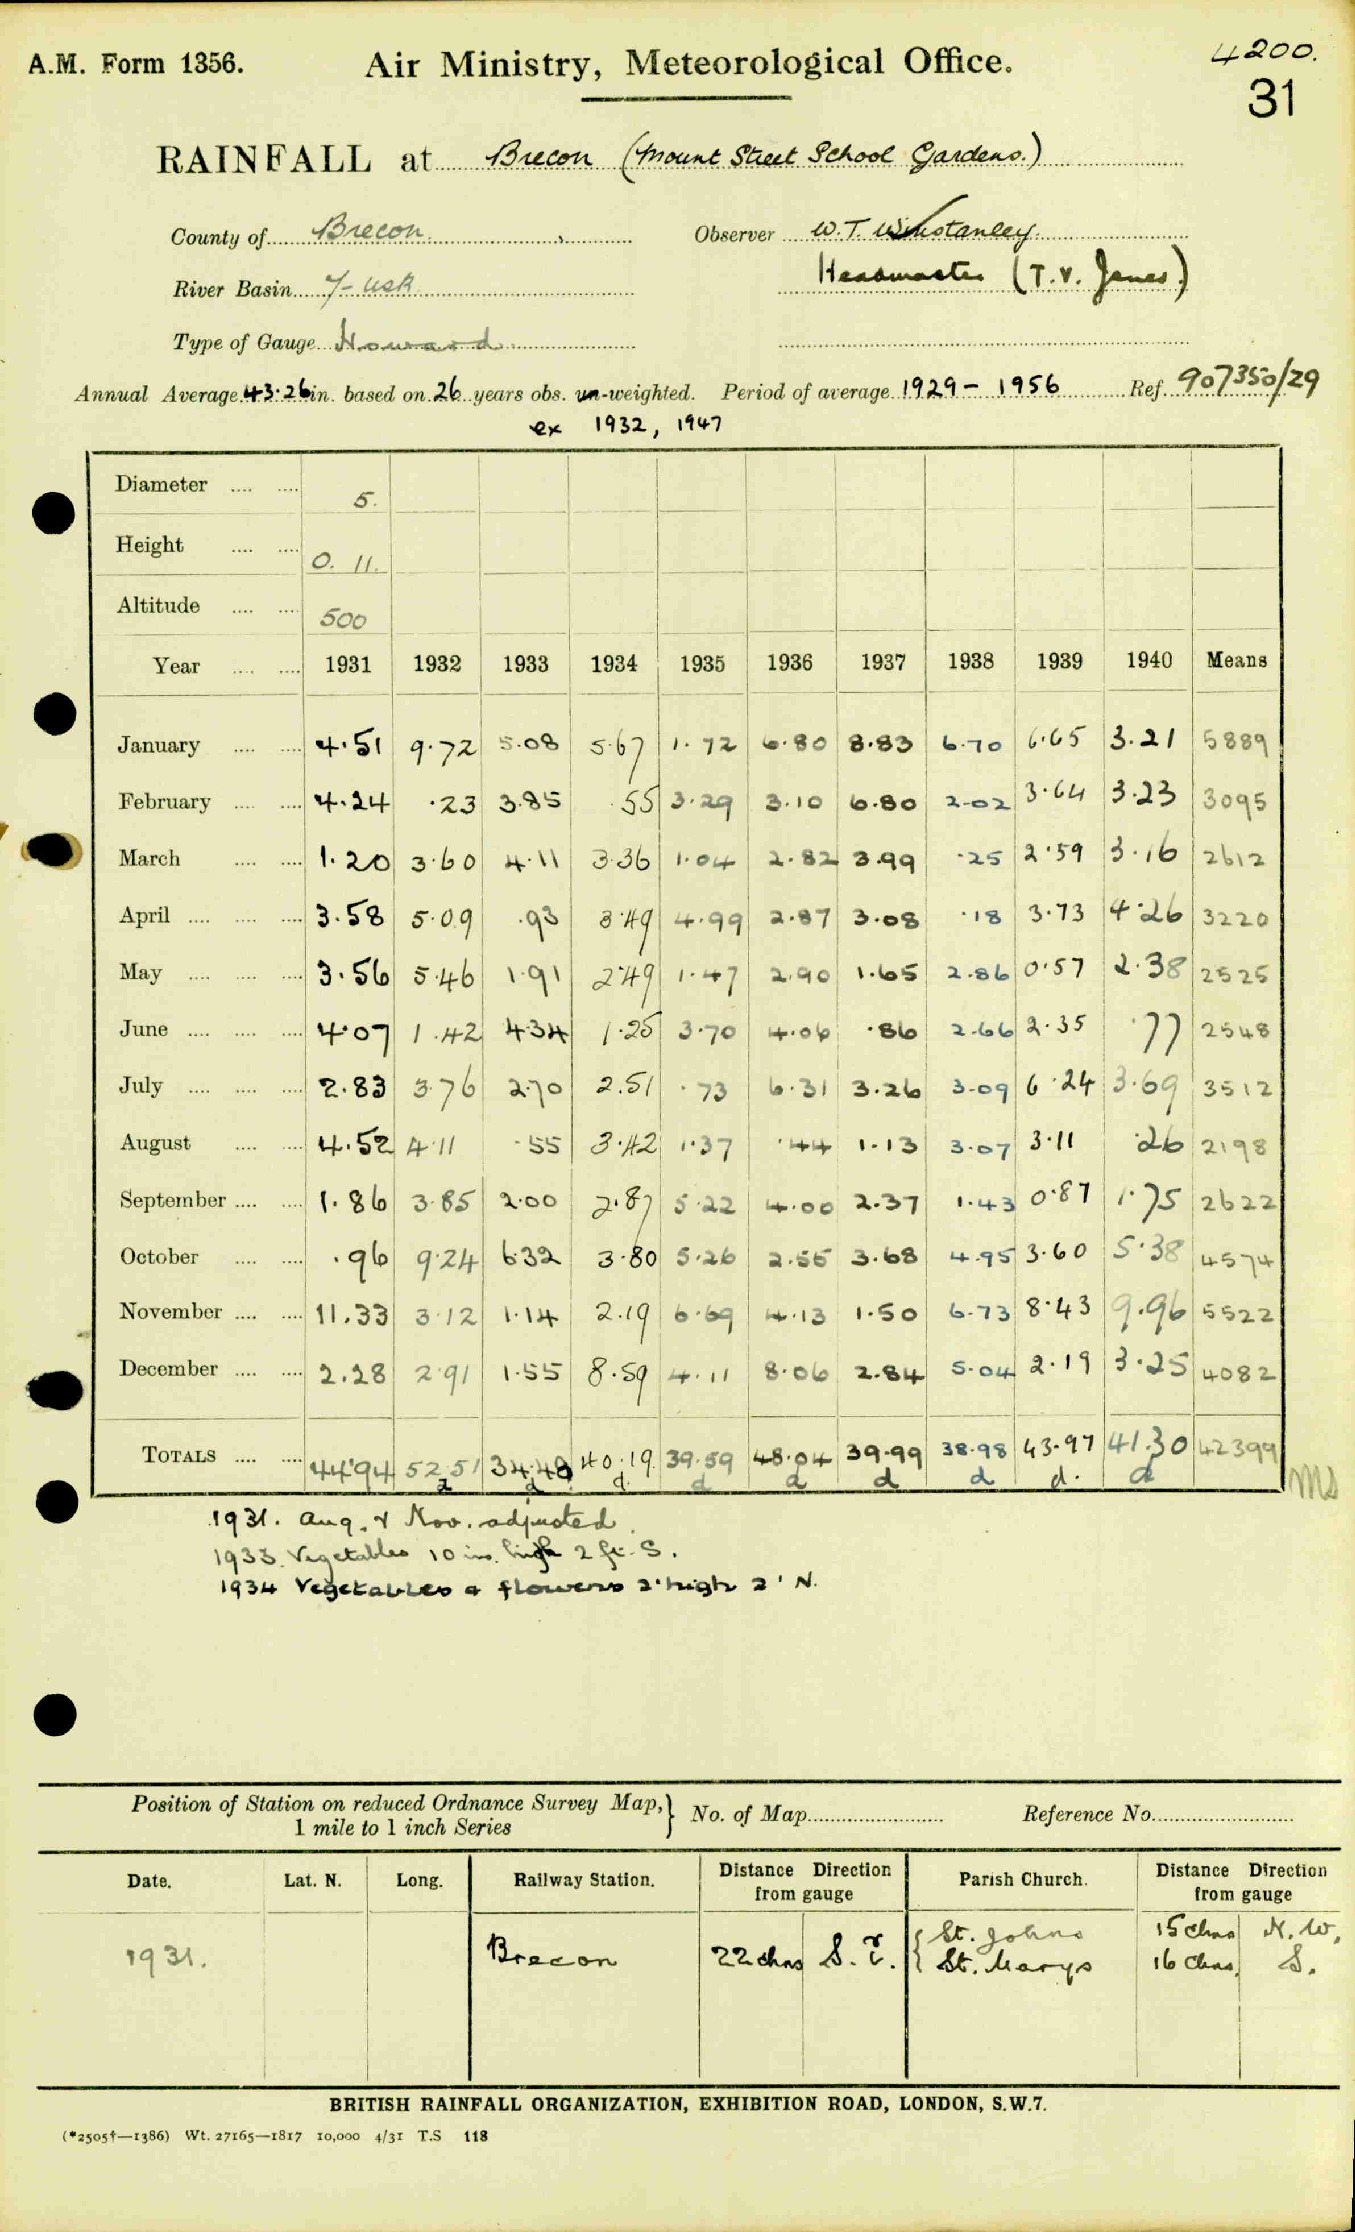 A.M. Form 1356.
Air Ministry, Meteorological Office.
4200.
31
RAINFALL at Brecon (Mount Street School Gardens.)
County of Brecon. Observer W.T. Winstanley.
Headmaster (T.V. Jones)
River Basin 7-Usk
Type of Gauge Howard
Annual Average 43.26 in. based on 26 years obs. un-weighted. Period of average 1929 - 1956 Ref. 907350/29
ex 1932, 1947
Diameter .... .... 5.
Height .... .... 0. 11.
Altitude .... .... 500
Year .... .... 1931 1932 1933 1934 1935 1936 1937 1938 1939 1940 Means
January .... .... 4.51 9.72 5.08 5.67 1.72 6.80 8.83 6.70 6.65 3.21 5889
February .... .... 4.24 .23 3.85 .55 3.29 3.10 6.80 2.02 3.64 3.23 3095
March .... .... 1.20 3.60 4.11 3.36 1.04 2.82 3.99 .25 2.59 3.16 2612
April .... .... .... 3.58 5.09 .93 3.49 4.99 2.87 3.08 .18 3.73 4.26 3220
May .... .... .... 3.56 5.46 1.91 2.49 1.47 2.90 1.65 2.86 0.57 2.38 2525
June .... .... .... 4.07 1.42 4.34 1.25 3.70 4.06 .86 2.66 2.35 .77 2548
July .... .... .... 2.83 3.76 2.70 2.51 .73 6.31 3.26 3.09 6.24 3.69 3512
August .... .... 4.52 4.11 .55 3.42 1.37 .44 1.13 3.07 3.11 .26 2198
September .... .... 1.86 3.85 2.00 2.87 5.22 4.00 2.37 1.43 0.87 1.75 2622
October .... .... .96 9.24 6.32 3.80 5.26 2.55 3.68 4.95 3.60 5.38 4574
November .... .... 11.33 3.12 1.14 2.19 6.69 4.13 1.50 6.73 8.43 9.96 5522
December .... .... 2.28 2.91 1.55 8.59 4.11 8.06 2.84 5.04 2.19 3.25 4082
TOTALS .... .... 44.94 52.51 34.48 40.19 39.59 48.04 39.99 38.98 43.97 41.30 42399
d d d d d d d d. d MS
1931. Aug. & Nov. adjusted.
1933. Vegetables 10 ins. high 2 ft. S.
1934 Vegetables & flowers 2' high 2' N.
Position of Station on reduced Ordnance Survey Map, 1 mile to 1 inch Series } No. of Map Reference No.
Date. Lat. N. Long. Railway Station. Distance Direction from gauge Parish Church. Distance Direction from gauge
1931. Brecon 22 chns S.E. { St. Johns 15 chns N.W.
St. Marys 16 Chns. S.
BRITISH RAINFALL ORGANIZATION, EXHIBITION ROAD, LONDON, S.W.7.
(*2505†—1386) Wt. 27165—1817 10,000 4/31 T.S 118